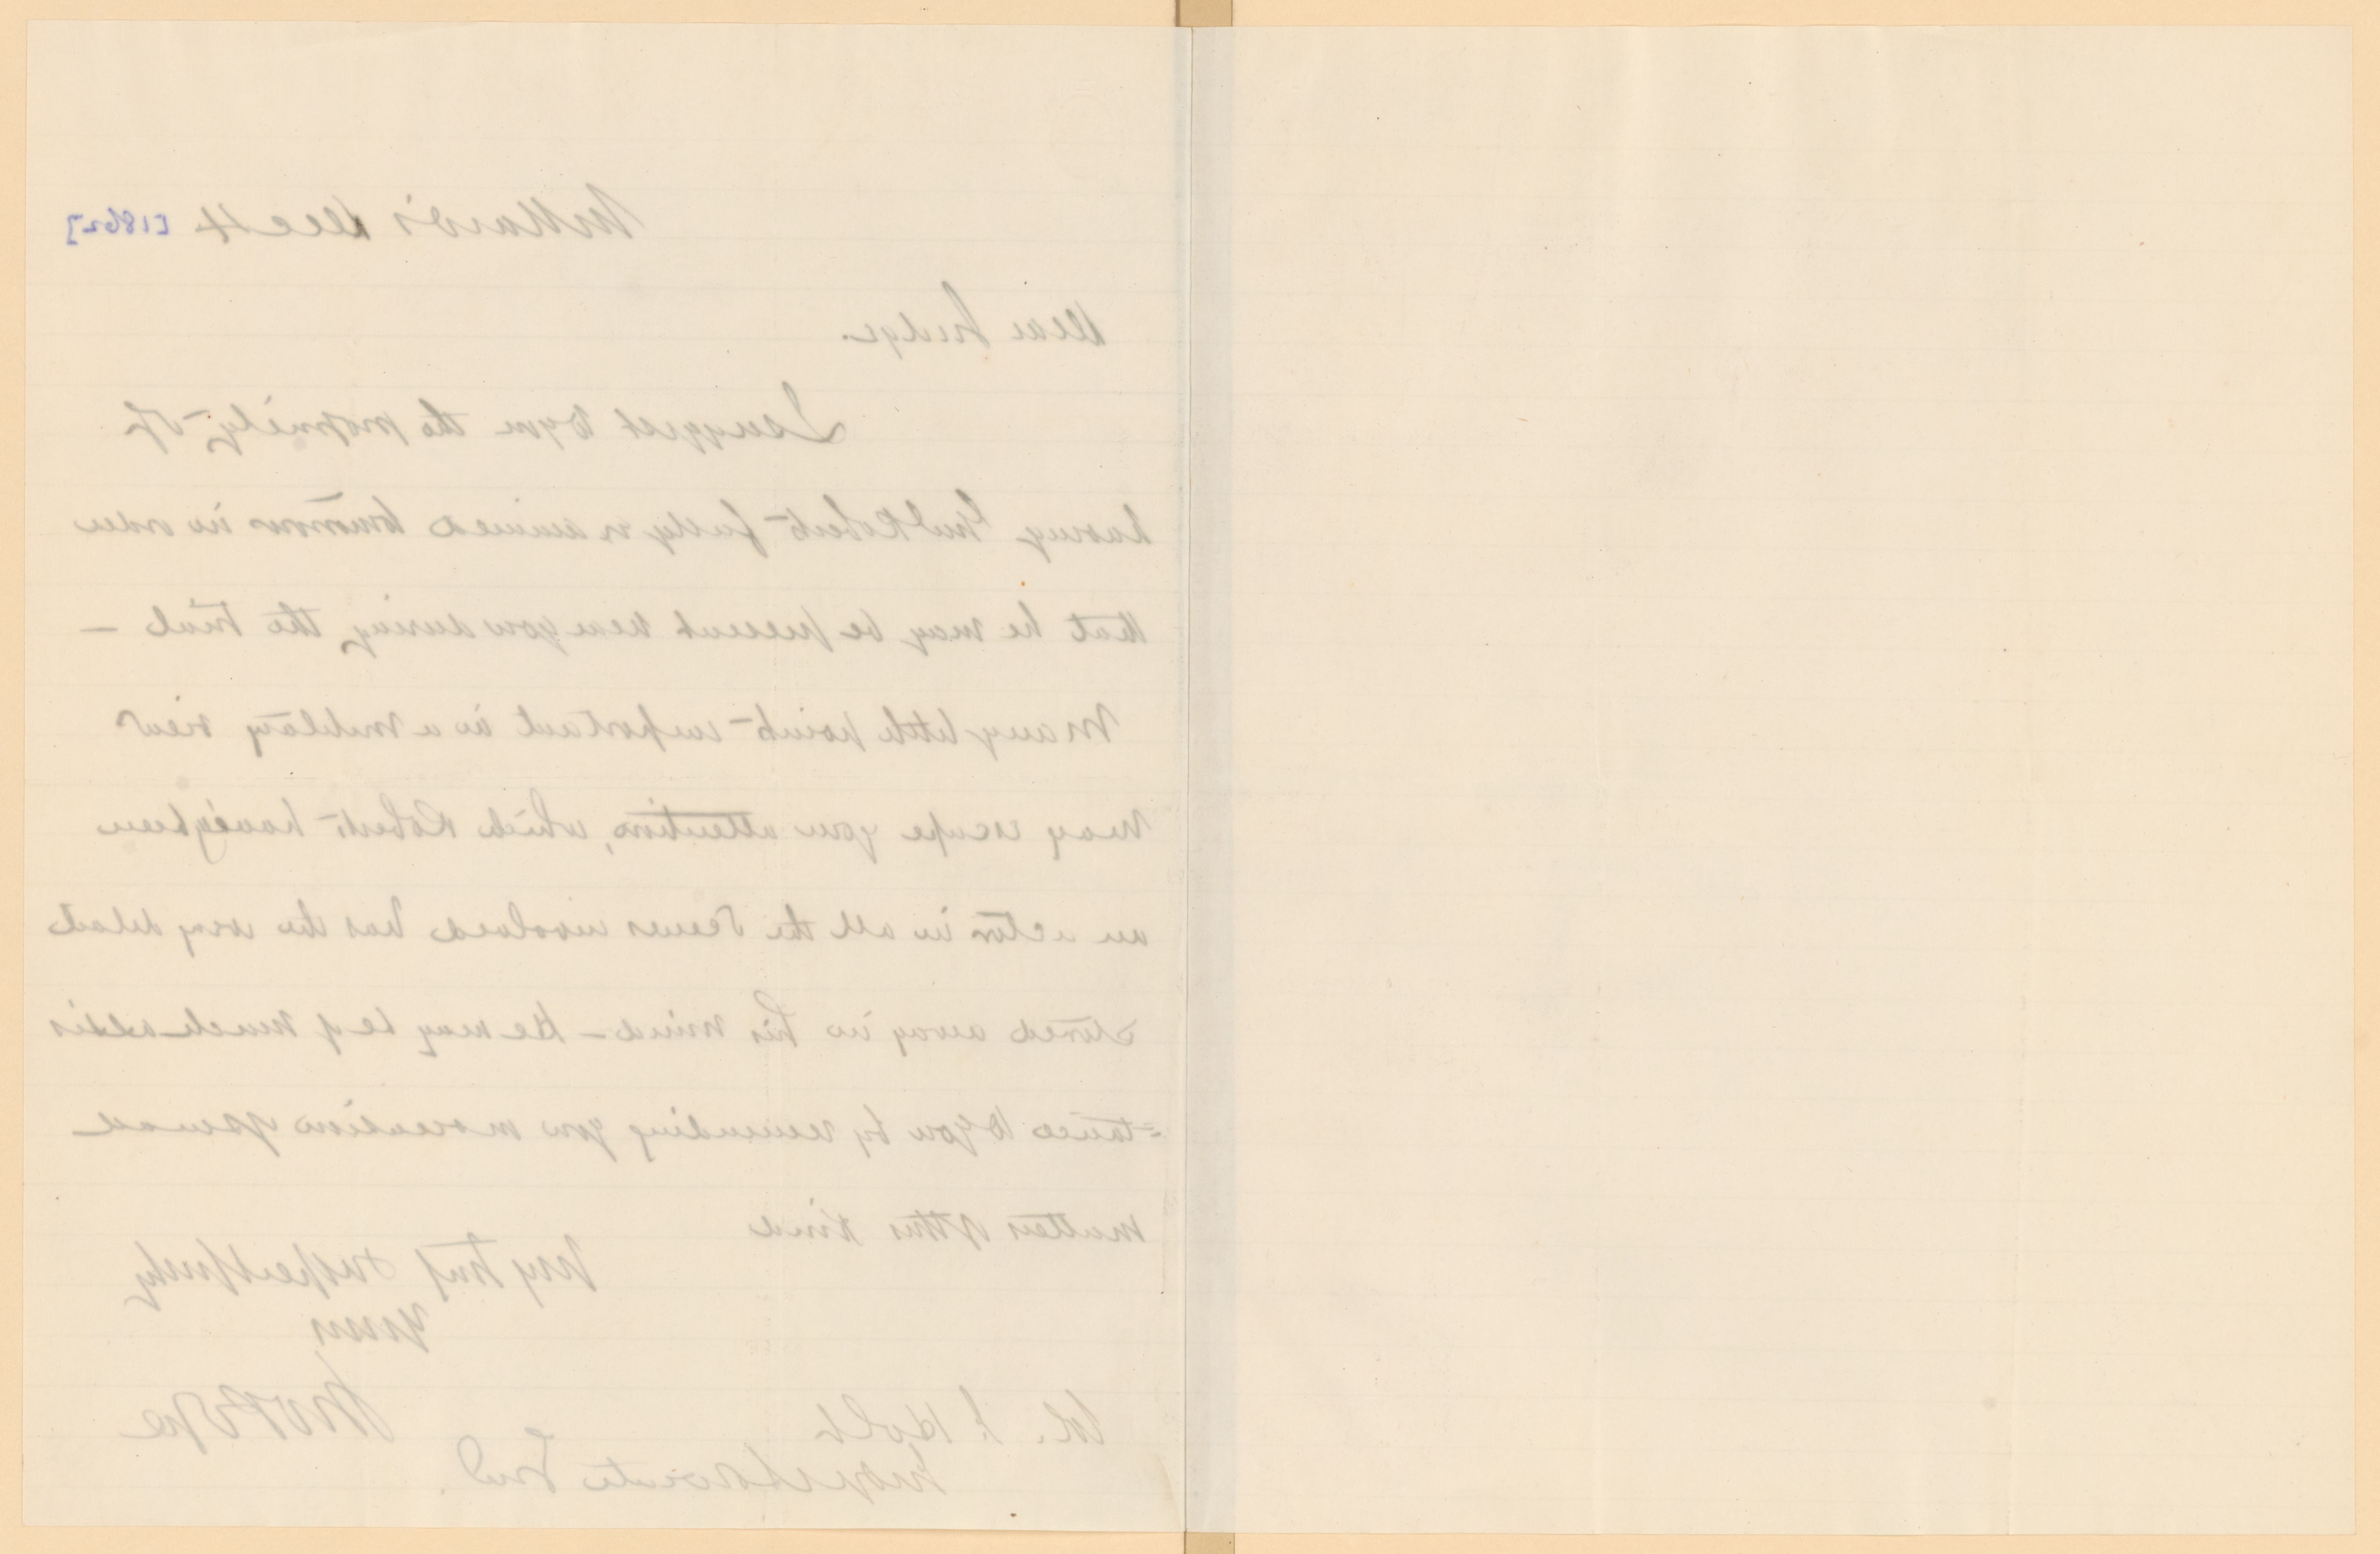 Willard's Dec 4 [1862]
Dear Judge.
I suggest to you the propriety of
having Genl Roberts fully examined tomorrow in order
that he may be present near you during the trial —
Many little points important in a military view
may escape your attention, which Roberts having been
an actor in all the scenes involved has the very detail
stored away in his mind — He may be of much assis
=tance to you by reminding you
matters of this kind
Very truly & respectfully
Yours
Jno Pope
J. Holt
Judge Advocate Genl.